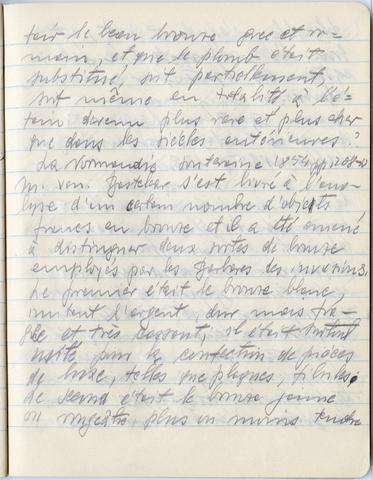 toir le beau bronze grec et ro-
main, et que le plomb était
substitué, soit partiellement,
soit même en totalité à l'é-
tain devenu plus rare et plus cher
que dans les siècles antérieures?
La Normandie souterraine 1854
M. s'est livré à l'ana-
lyse d'un certain nombre d'objets
francs en bronze et il a été amené
à distinguer deux sortes de bronze
employés par les Barbares des invasions.
Le premier était le bronze blanc,
imitant l'argent, dur mais fra-
gile et très cassant, il était surtout
pour la confection de pièces
de luxe, telles que plaques, fibules;
de second était le bronze jaune
ou rougeâtre, plus ou moins tendre